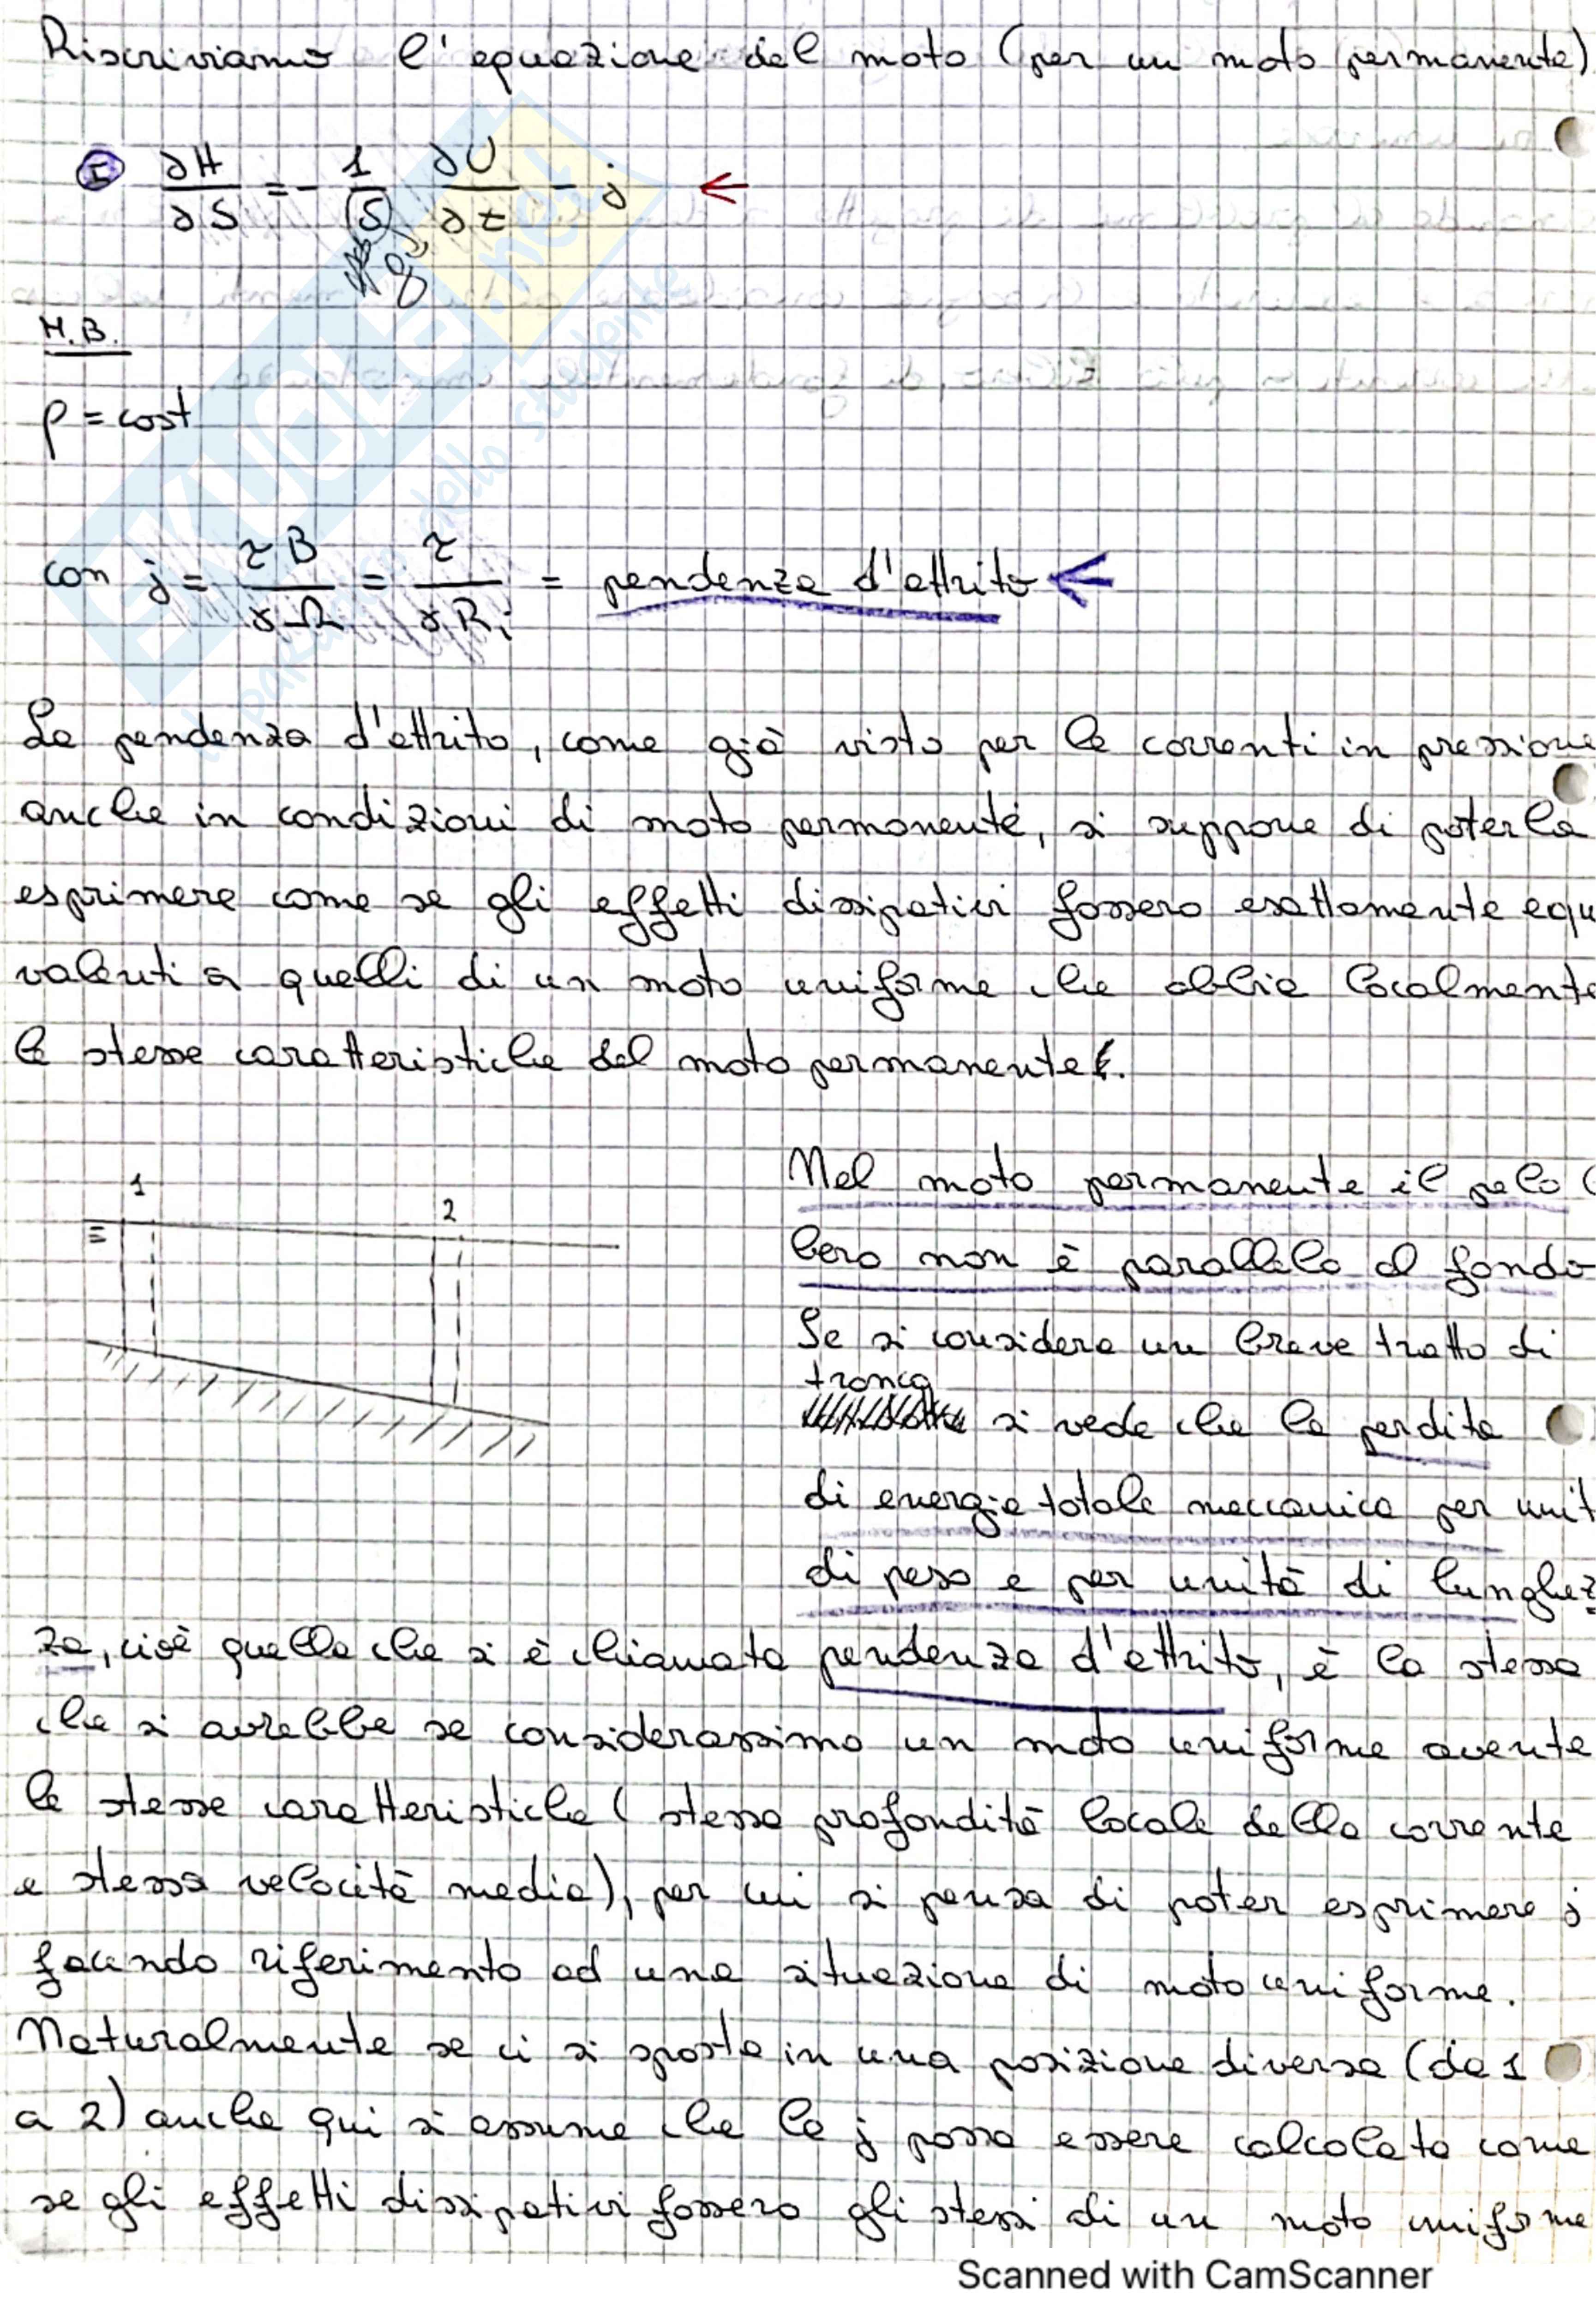 Riscriviamo l'equazione del moto (per un moto permanente)
I ∂H/∂S = - 1/S ∂U/∂t - j ←
g
N.B.
ρ = cost
con j = τB/γΩ = τ/γRi = pendenza d'attrito ←
La pendenza d'attrito, come già visto per le correnti in pressione
anche in condizioni di moto permanente, si suppone di poterla
esprimere come se gli effetti dissipativi fossero esattamente equi
valenti a quelli di un moto uniforme che abbia localmente
le stesse caratteristiche del moto permanente.
1
2
Nel moto permanente il pelo l
bero non è parallelo al fondo
Se si considera un breve tratto di
tronco
si vede che la perdita
di energia totale meccanica per unit
di peso e per unità di lunghez
za, cioè quella che si è chiamata pendenza d'attrito, è la stessa
che si avrebbe se considerassimo un moto uniforme avente
le stesse caratteristiche (stessa profondità locale della corrente
e stessa velocità media), per cui si pensa di poter esprimere j
facendo riferimento ad una situazione di moto uniforme.
Naturalmente se ci si sposta in una posizione diversa (da 1
a 2) anche qui si assume che la j possa essere calcolata come
se gli effetti dissipativi fossero gli stessi di un moto uniforme
Scanned with CamScanner
SKUOLA.net
il paradiso dello studente